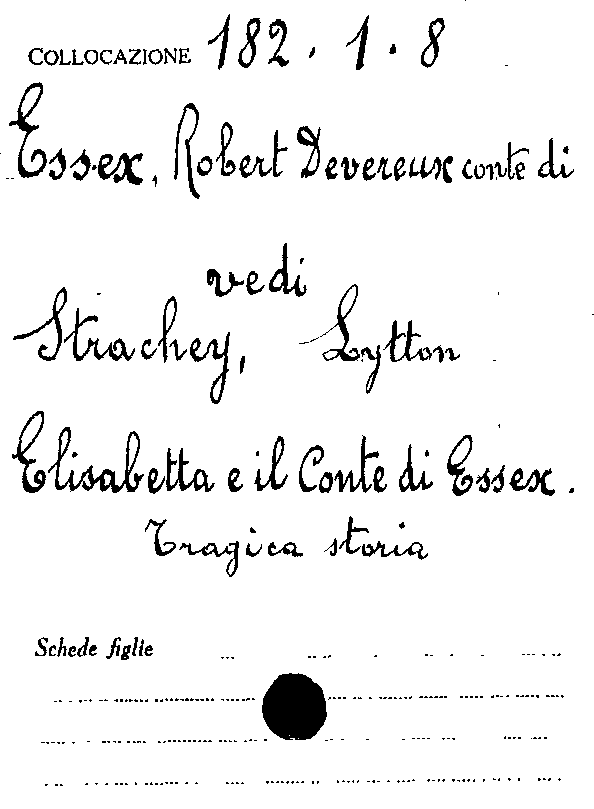 COLLOCAZIONE 182 . 1 . 8
Essex, Robert Devereux conte di
vedi
Strachey, Lytton
Elisabetta e il Conte di Essex.
Tragica storia
Schede figlie